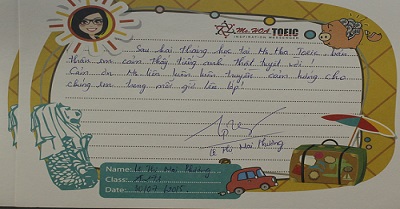 Ms HOA TOEIC
INSPIRATION MESSENGER
Sau hai tháng học tại Ms Hoa Toeic, bản
thân em cảm thấy tiếng anh thật tuyệt vời!
Cảm ơn Ms luôn luôn truyền cảm hứng cho
chúng em trong mỗi giờ lên lớp!
Lê Thị Mai Phương
Name: Lê Thị Mai Phương
Class:
Date: /2015